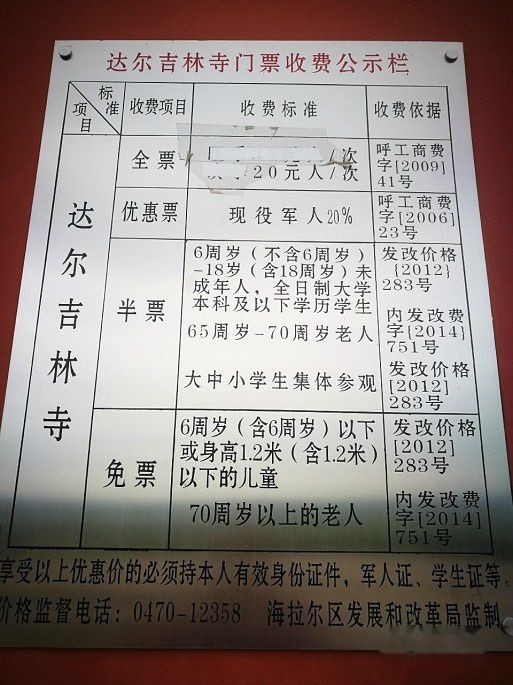 达尔吉林寺门票收费公示栏
标准
项目
收费项目
收费标准
收费依据
达尔吉林寺
全票
人/次
20元人/次
呼工商费
字[2009]
41号
优惠票
现役军人20%
呼工商费
字[2006]
23号
半票
6周岁(不含6周岁)
-18岁(含18周岁)未
成年人,全日制大学
本科及以下学历学生
65周岁-70周岁老人
大中小学生集体参观
发改价格
{2012}
283号
内发改费
字{2014}
751号
发改价格
[2012]
283号
免票
6周岁(含6周岁)以下
或身高1.2米(含1.2米)
以下的儿童
70周岁以上的老人
发改价格
[2012]
283号
内发改费
字[2014]
751号
享受以上优惠价的必须持本人有效身份证件,军人证、学生证等。
价格监督电话:0470-12358 海拉尔区发展和改革局监制